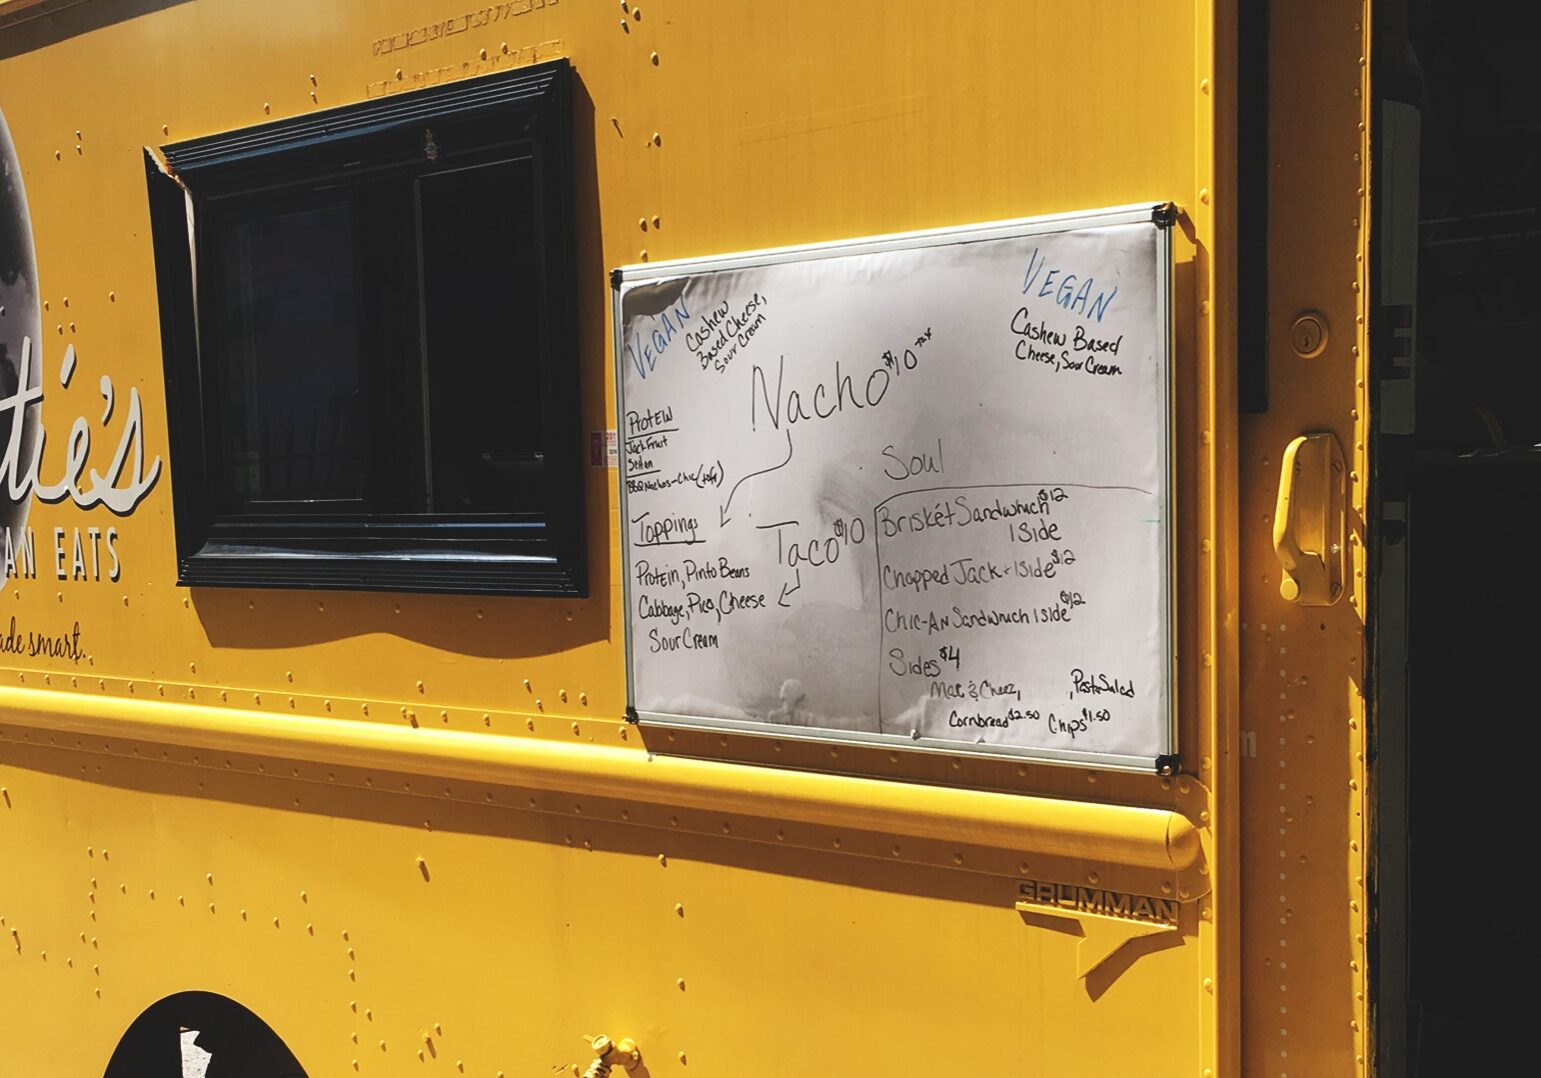 tie's
AN EATS
ade smart.
VEGAN
Cashew
Based Cheese,
Sour Cream
VEGAN
Cashew Based
Cheese, Sour Cream
Nacho $10
Protein
Jack Fruit
BBQ Nachos - Chic (tofu)
Toppings
Protein, Pinto Beans
Cabbage, Pico, Cheese
Sour Cream
Taco $10
Soul
Brisket Sandwhich $12
1 Side
Chopped Jack + 1 Side $12
Chic-An Sandwhich 1 Side $12
Sides $4
Mac & Cheez, , Pasta Salad
Cornbread $2.50 Chips $1.50
GRUMMAN